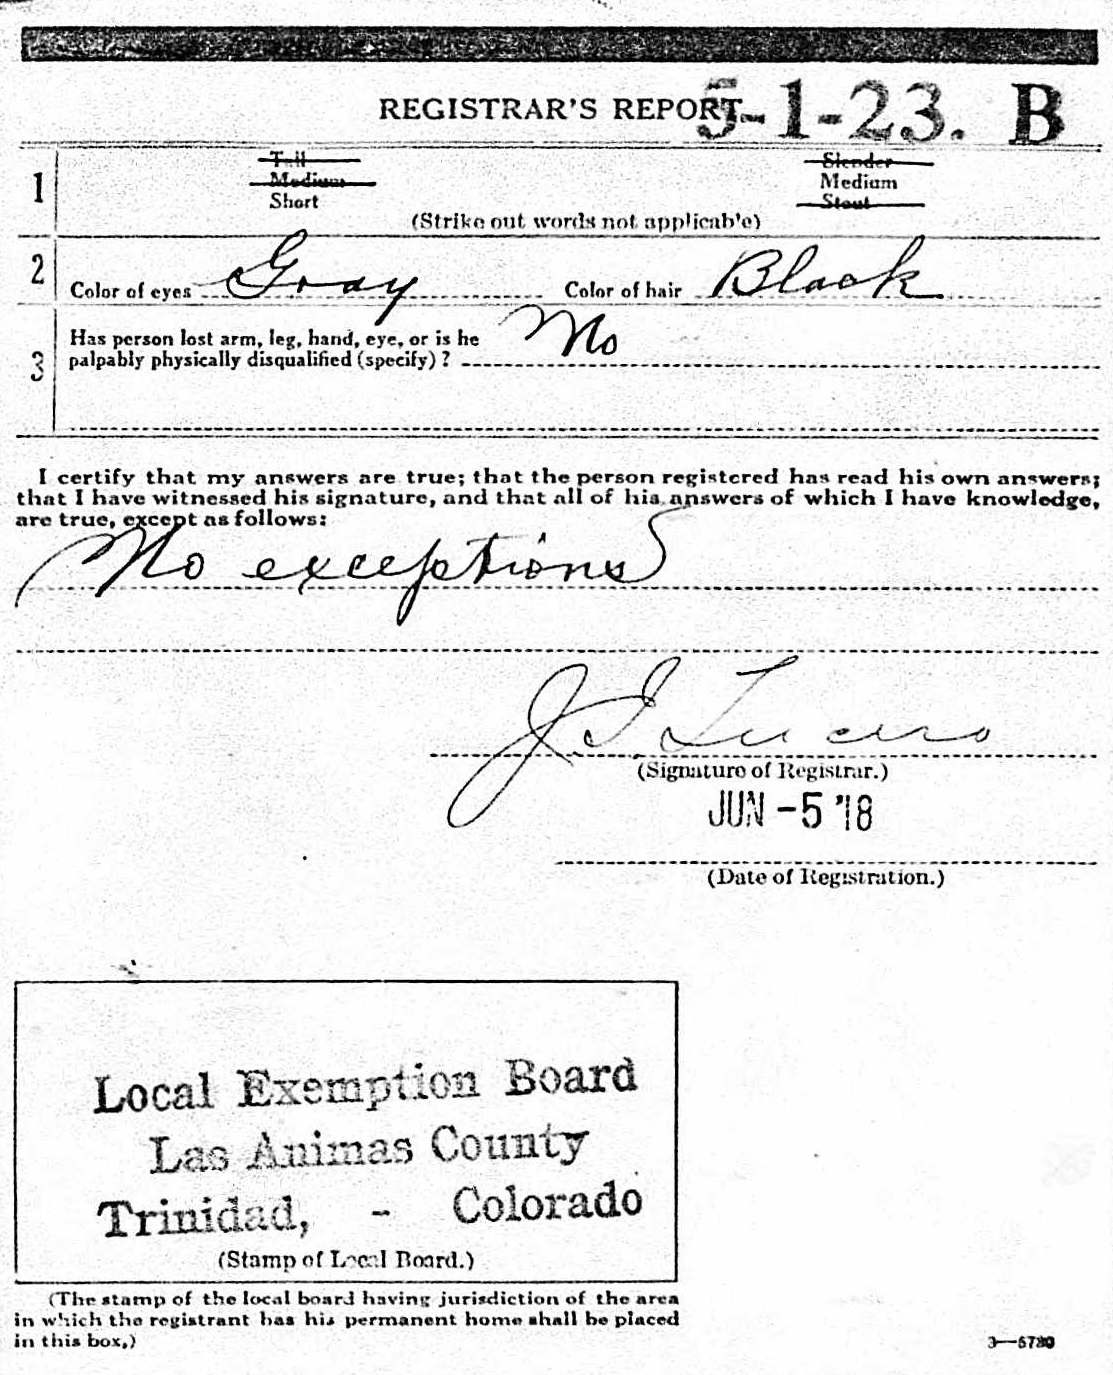 REGISTRAR'S REPORT 5-1-23. B
1 Tall Slender
Medium Medium
Short Stout
(Strike out words not applicable)
2 Color of eyes Gray Color of hair Black
3 Has person lost arm, leg, hand, eye, or is he
palpably physically disqualified (specify)? No
I certify that my answers are true; that the person registered has read his own answers;
that I have witnessed his signature, and that all of his answers of which I have knowledge,
are true, except as follows:
No exceptions
J I Lucero
(Signature of Registrar.)
JUN -5 '18
(Date of Registration.)
Local Exemption Board
Las Animas County
Trinidad, - Colorado
(Stamp of Local Board.)
(The stamp of the local board having jurisdiction of the area
in which the registrant has his permanent home shall be placed
in this box.)
3—5780